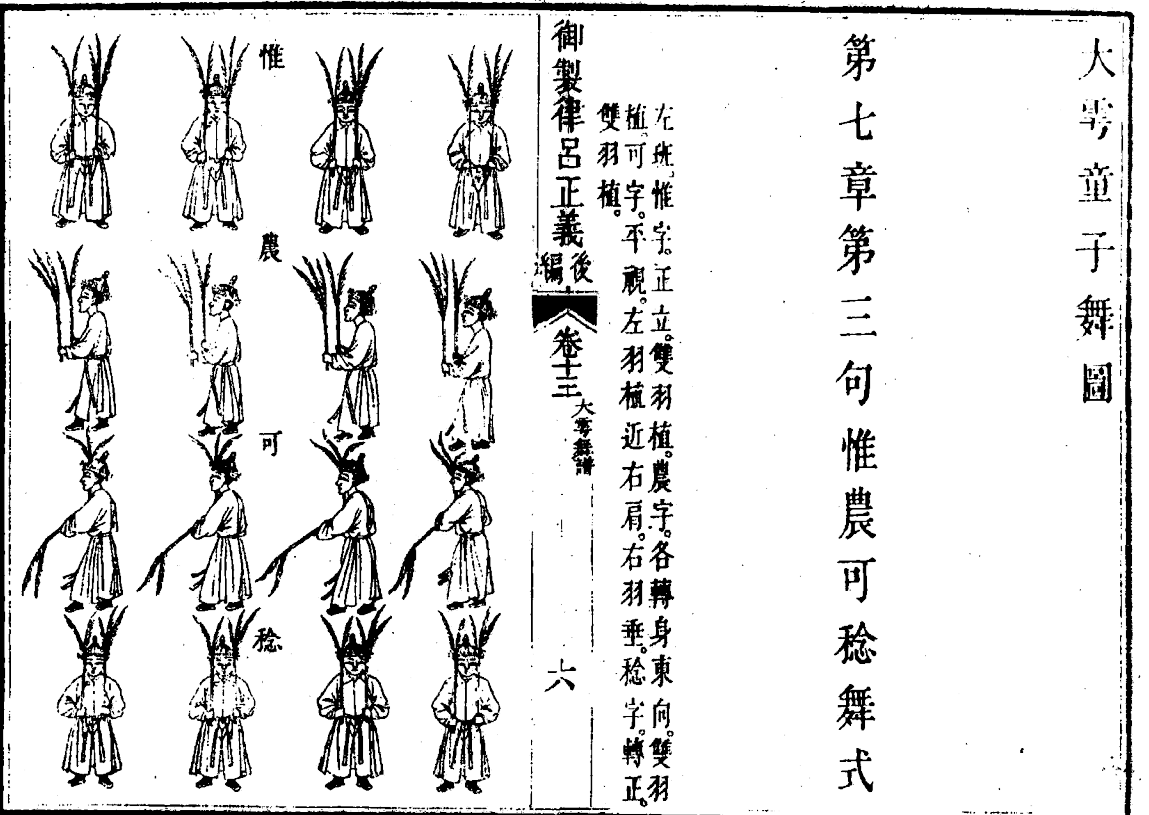 大雩童子舞圖
第七章第三句惟農可稔舞式
左班惟字。正立。雙羽植。農字。各轉身東向。雙羽
植。可字。平視。左羽植近右肩。右羽垂。稔字。轉正。
雙羽植。
御製律呂正義後編
卷十三
大雩舞譜
六
惟
農
可
稔